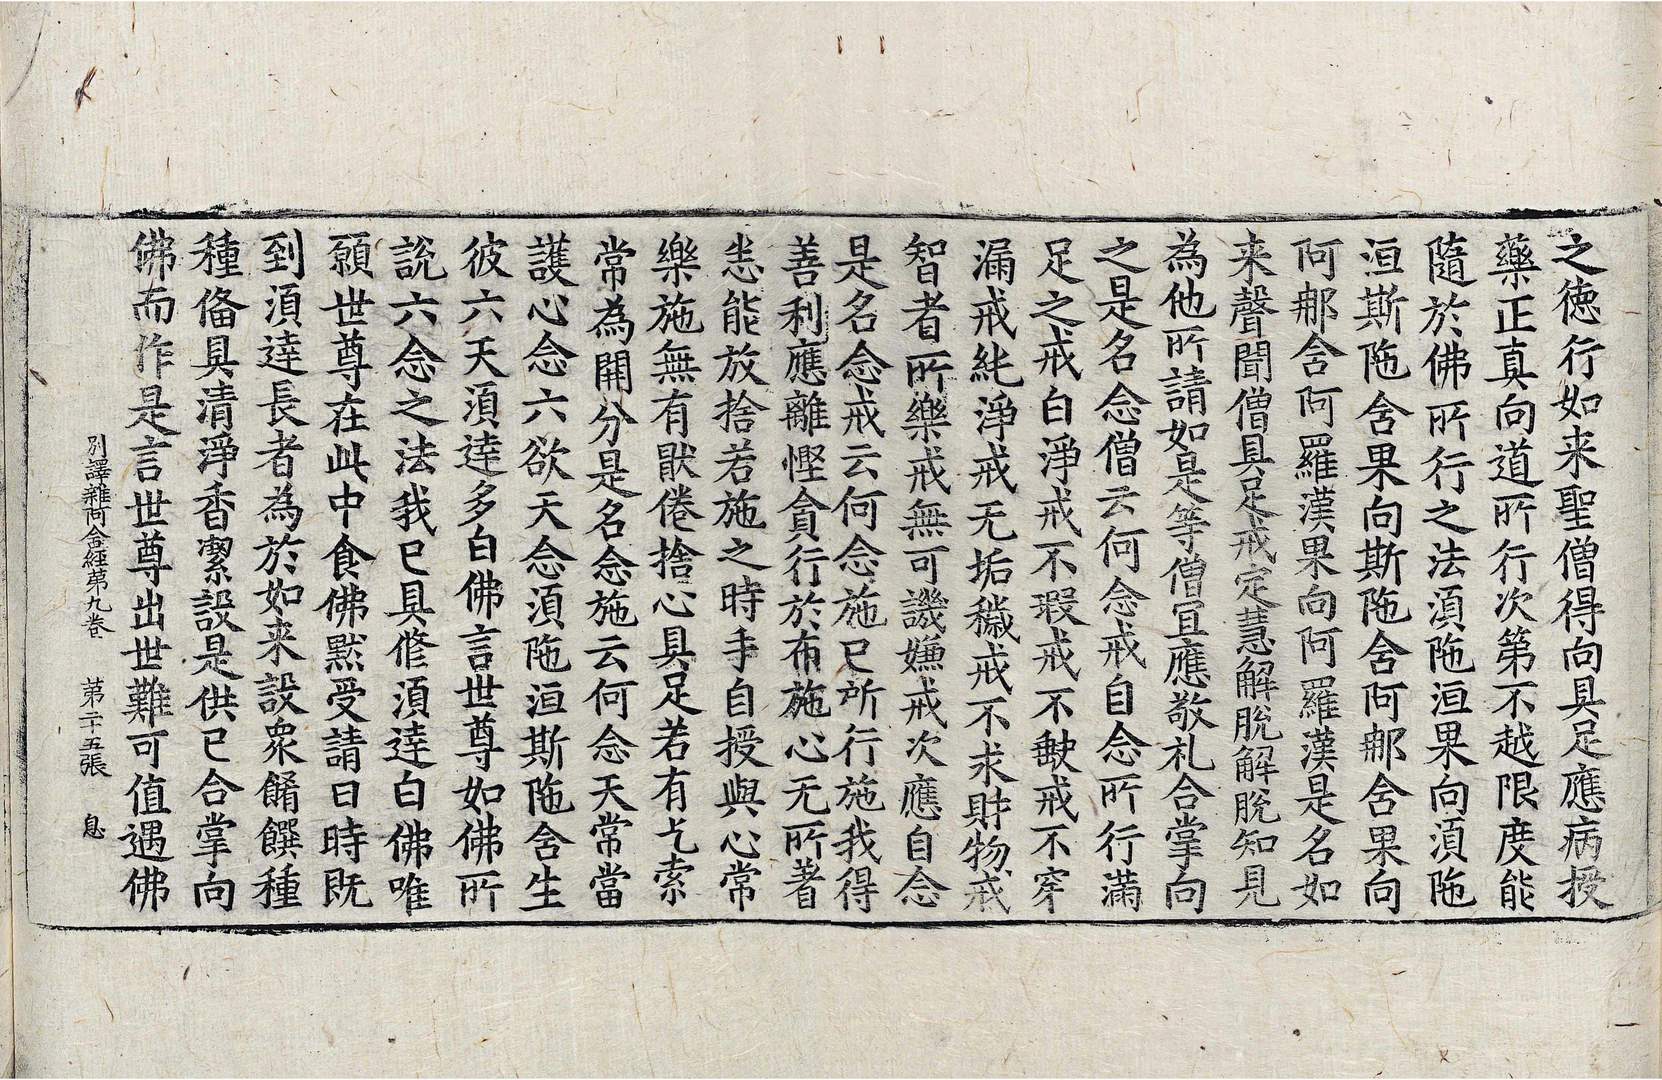 之德行如来聖僧得向具足應病授
藥正真向道所行次第不越限度能
隨於佛所行之法湏陁洹果向湏陁
洹斯陁含果向斯陁含阿郍含果向
阿郍含阿羅漢果向阿羅漢是名如
来聲聞僧具足戒定慧解脫解脫知見
為他所請如是等僧冝應敬礼合掌向
之是名念僧云何念戒自念所行滿
足之戒白淨戒不瑕戒不缺戒不穿
漏戒純淨戒无垢穢戒不求財物戒
智者所樂戒無可譏嫌戒次應自念
是名念戒云何念施已所行施我得
善利應離慳貪行於布施心无所著
悉能放捨若施之時手自授與心常
樂施無有猒倦捨心具足若有乞索
常為開分是名念施云何念天常當
護心念六欲天念湏陁洹斯陁含生
彼六天湏達多白佛言世尊如佛所
說六念之法我已具修湏達白佛唯
願世尊在此中食佛默受請日時既
到湏達長者為於如来設衆餚饌種
種俻具清淨香潔設是供已合掌向
佛而作是言世尊出世難可值遇佛
別譯雜阿含經第九卷　第二十五張　息